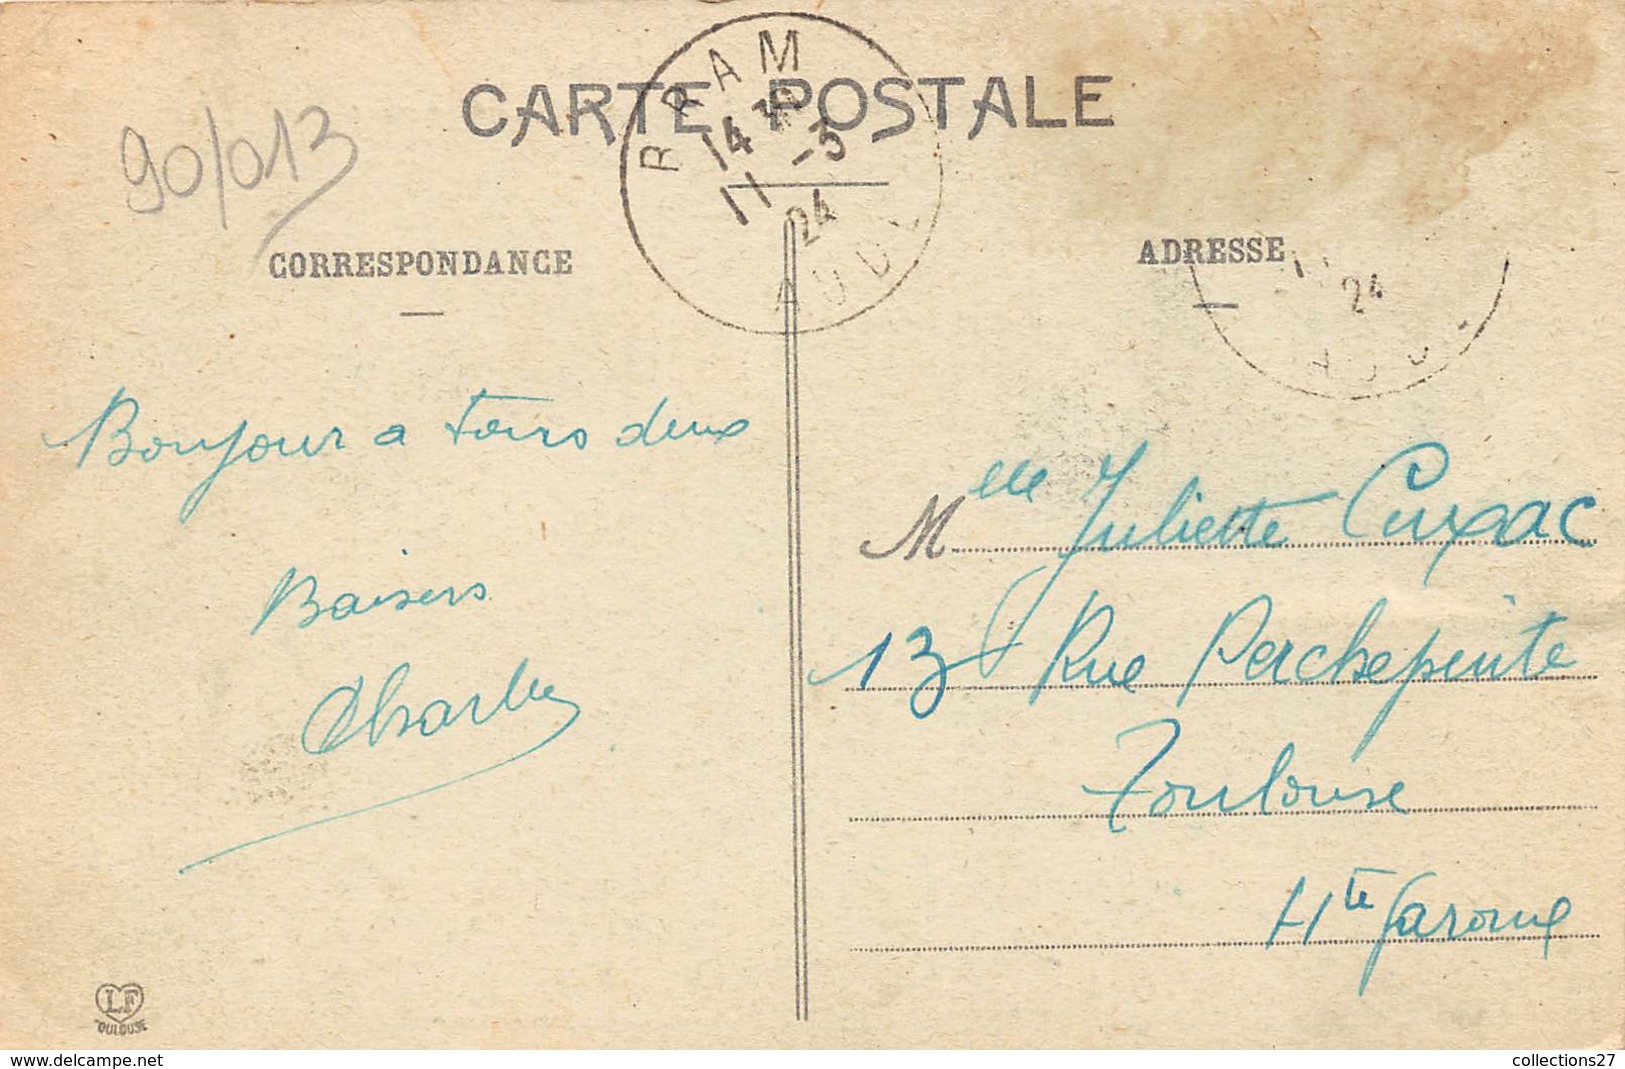 CARTE POSTALE
BRAM
14 30
11 -3
24
AUDE
90/013
CORRESPONDANCE
ADRESSE
24
Bonjour a tous deux
Baisers
Charles
Mlle Juliette Cuxac
13 Rue Perchepinte
Toulouse
Hte Garonne
LF
TOULOUSE
www.delcampe.net
collections27